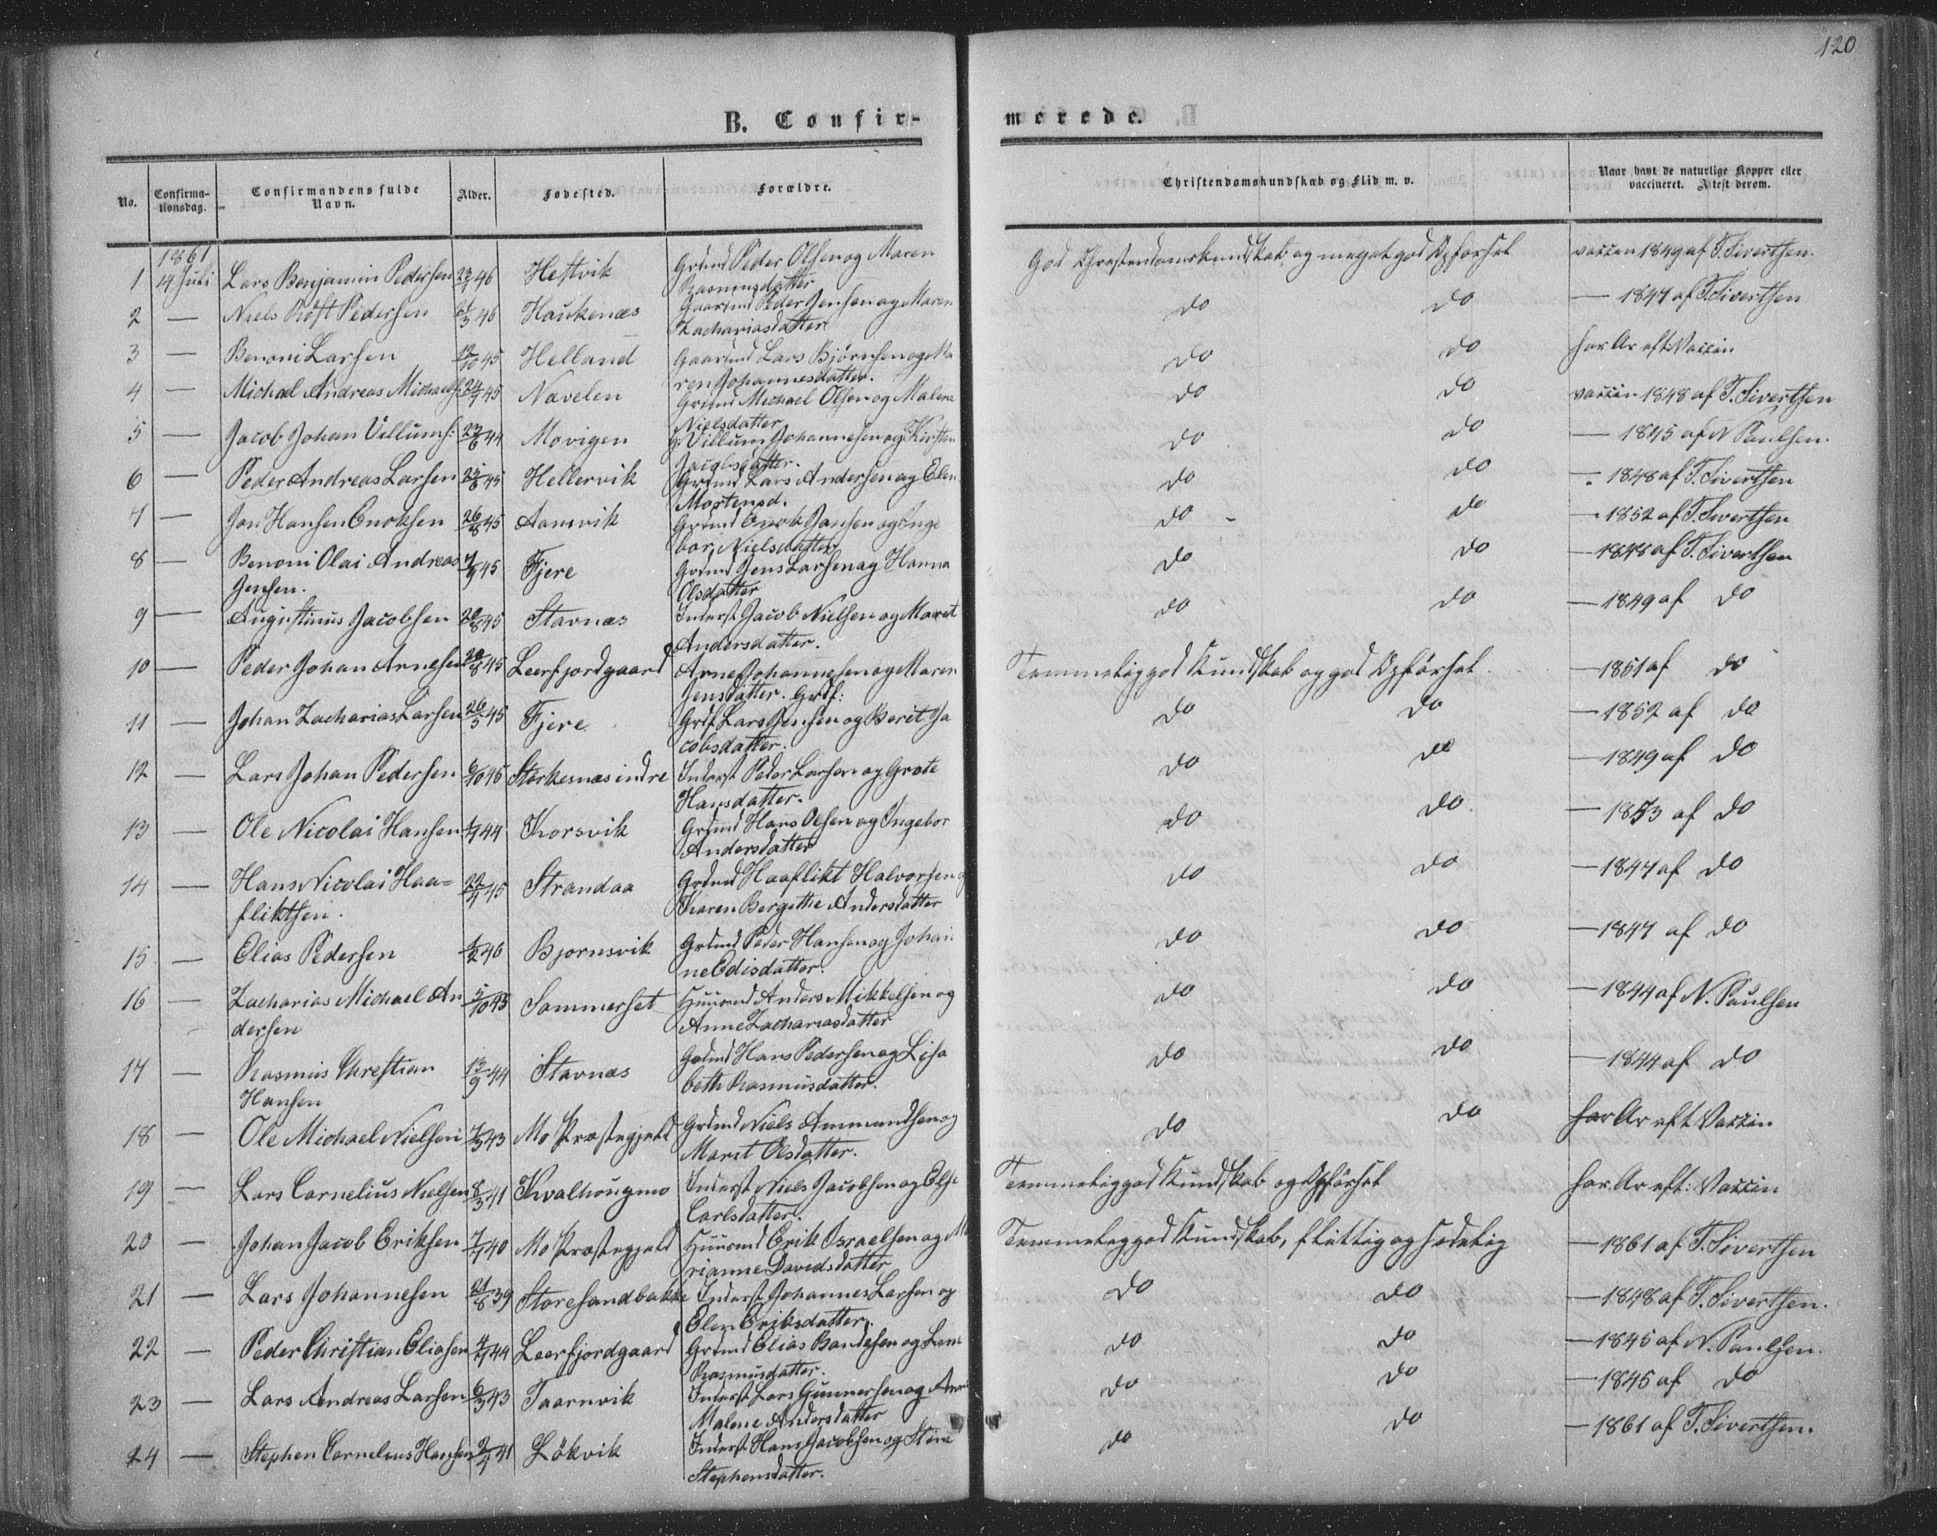 120
B. Confir-
merede.
No.
Confirma-
tionsdag.
Confirmandens fulde
Navn.
Alder.
Fødested.
Forældre.
Christendomskundskab og Flid m. v.
Naar havt de naturlige Kopper eller
vaccineret. Attest derom.
1861
1 14 Juli Lars Benjamin Pedersen 46 Hestvik Grdmd Peder Olsen og Maren
Rasmusdatter God Christendomskundskab og meget god Opførsel vaccin 1849 af T. Sivertsen.
2 — Niels Røst Pedersen 46 Haukenæs Gaardmd Peder Jensen og Maren
Zachariasdatter do do — 1847 af T. Sivertsen
3 — Benoni Larsen 45 Helland Gaardmd Lars Bjørnsen og Ma
ren Johannesdatter. do do har Ar eft Vaccin
4 — Michael Andreas Michaels: 45 Navelen Grdmd Michael Olsen og Malene
Nielsdatter do do vaccin 1848 af T. Sivertsen
5 — Jacob Johan Villums: 44 Movigen Villum Johannesen og Kirsten
Jacobsdatter. do do — 1845 af N Paulsen.
6 — Peder Andreas Larsen 45 Hellervik Grdmd Lars Andersen og Elen
Mortensd. do do — 1848 af T. Sivertsen
7 — Jon Hansen Enoksen 26/8 45 Aansvik Grdmd Enok Jansen og Inge
bor Nielsdatter do do — 1852 af T. Sivertsen
8 — Benoni Olai Andreas
Jensen. 45 Fjere Grdmd Jens Larsen og Hanna
Olsdatter do do — 1848 af T. Sivertsen
9 — Augustinus Jacobsen 45 Stavnæs Inderst Jacob Nielsen og Marit
Andersdatter. do do — 1849 af do
10 — Peder Johan Arnesen 45 Leerfjordgaard Arne Johannesen og Maren
Jensdatter. Grdf: Temmelig god Kundskab og god Opførsel. — 1851 af do
11 — Johan Zacharias Larsen 26/5 45 Fjere Grdf Lars Jensen og Berit Ja
cobsdatter. do do — 1852 af do
12 — Lars Johan Pedersen 6/10 45 Storkesnæs indre Inderst Peder Larsen og Grete
Hansdatter. do do — 1849 af do
13 — Ole Nicolai Hansen 44 Korsvik Grdmd Hans Olsen og Ingebor
Andersdatter do do — 1853 af do
14 — Hans Nicolai Haa-
fliktsen. 45 Strandaa Grdmd Haaflikt Halvorsen og
Karen Bergithe Andersdatter do do — 1847 af do
15 — Elias Pedersen 46 Bjornsvik Grdmd Peder Hansen og Johan
ne Edisdatter. do do — 1847 af do
16 — Zacharias Michael An
dersen 5/10 45 Sommerset Huusmd Anders Mikkelsen og
Anne Zachariasdatter do do — 1844 af N. Paulsen
17 — Rasmus Christian
Hansen 13/9 44 Stavnæs Grdmd Hans Pedersen og Lisa
beth Rasmusdatter. do do — 1844 af do
18 — Ole Michael Nielsen 43 Mo Præstegjeld Grdmd Niels Ammundsen og
Marit Olsdatter. do do har Ar eft Vaccin
19 — Lars Cornelius Nielsen 8/3 41 Kvalhougmo Inderst Niels Jacobsen og Else
Carlsdatter. Temmelig god Kundskab og Opførsel har Ar eft: Vaccin
20 — Johan Jacob Eriksen 40 Mo Præstegjeld Huusmd Erik Israelsen og Ma
rianne Davidsdatter Temmelig god Kundskab, flittig og sædelig — 1861 af T. Sivertsen
21 — Lars Johannesen 21/8 39 Storesandbakke Inderst Johannes Larsen og
Elen Eriksdatter. do do — 1848 af T. Sivertsen.
22 — Peder Christian Eliasen 44 Leerfjordgaard Grdmd Elias Bendiksen og Lene
Rasmusdatter. do do — 1845 af N. Paulsen.
23 — Lars Andreas Larsen 6/3 43 Taarnvik Inderst Lars Gunnersen og Anne
Malene Andersdatter do do — 1845 af do
24 — Stephen Cornelius Hansen 41 Løkvik Inderst Hans Jacobsen og Stine
Stephensdatter. do do — 1861 af T. Sivertsen.